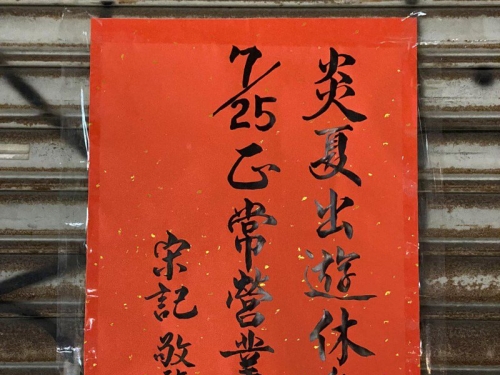 炎夏出遊休
7/25正常營業
宋記敬